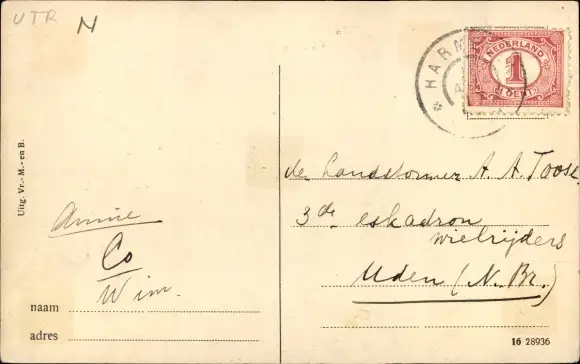 UTR N
HARM
NEDERLAND
1
CENT
Uitg. Vr.- M.- en B.
den Landstormer A. A. Toose
3de eskadron
wielrijders
Uden (N. Br.)
Annie
Co
Wim.
naam
adres
16 28936